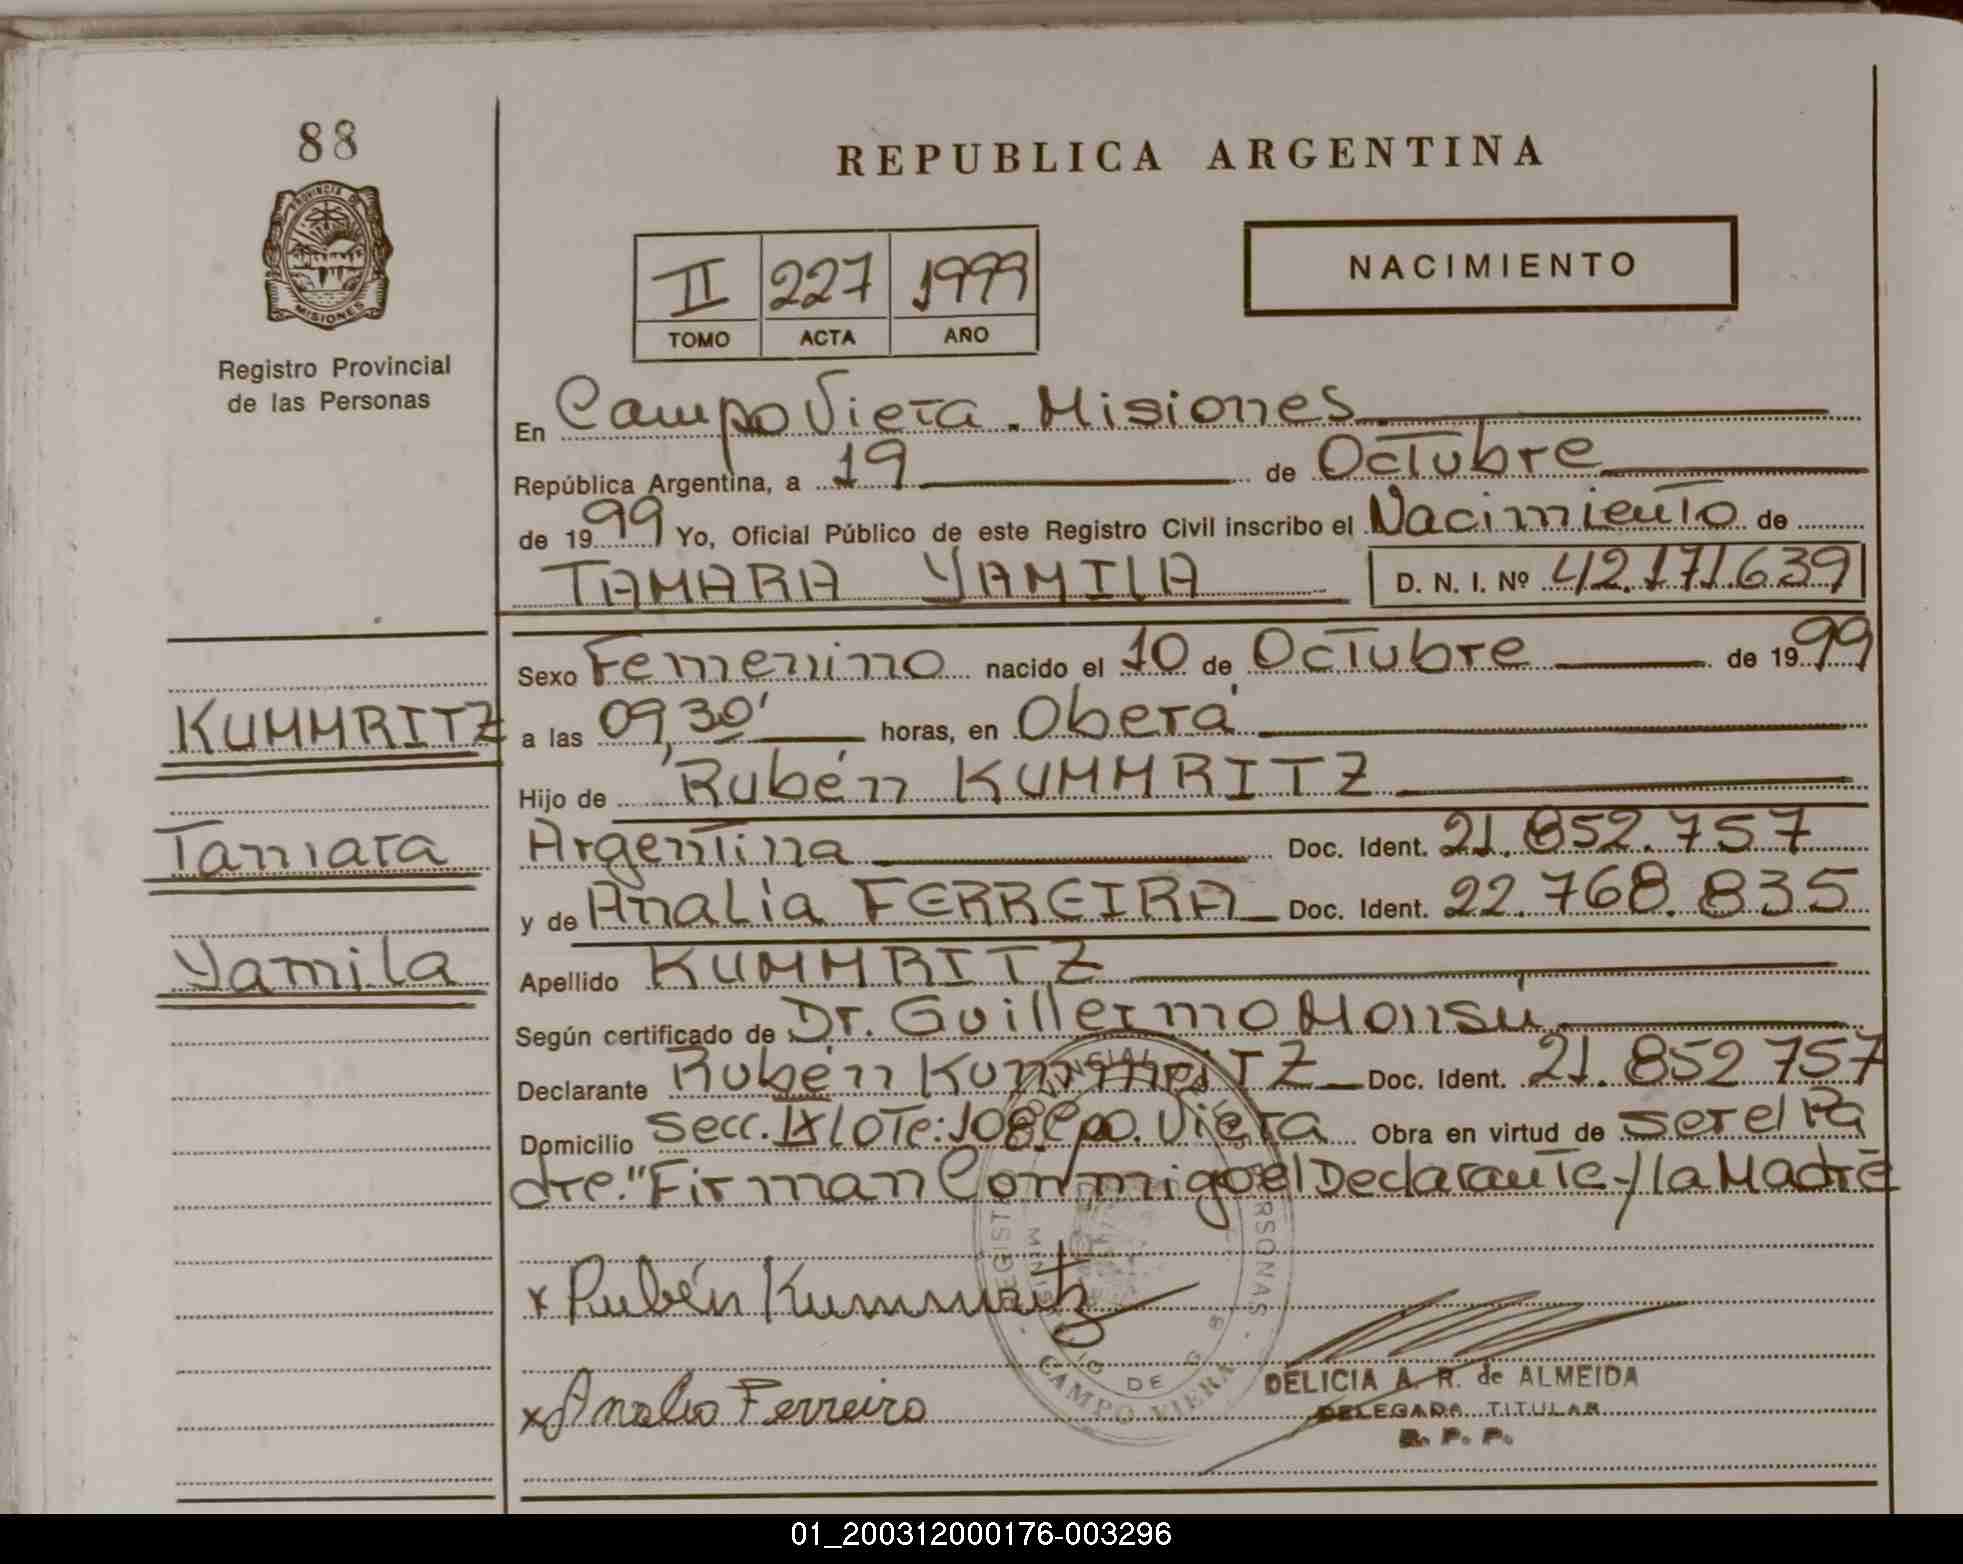 88
REPUBLICA ARGENTINA
PROVINCIA DE
MISIONES
Registro Provincial
de las Personas
II 227 1999
TOMO ACTA AÑO
NACIMIENTO
En Campo Viera. Misiones
República Argentina, a 19 de Octubre
de 1999 Yo, Oficial Público de este Registro Civil inscribo el Nacimiento de
TAMARA YAMILA D. N. I. Nº 42.171.639
Sexo Femenino nacido el 10 de Octubre de 1999
KUMMRITZ
a las 09,30' horas, en Oberá
Hijo de Rubén KUMMRITZ
Tamara
Argentina Doc. Ident. 21.852.757
y de Analia FERREIRA Doc. Ident. 22.768.835
Yamila
Apellido KUMMRITZ
Según certificado de Dr. Guillermo Monsú
Declarante Rubén KummRITZ Doc. Ident. 21.852757
Domicilio Secc. IX lote: 108. Cpo. Viera Obra en virtud de ser el Pa
dre." Firman Conmigo el Declarante y la Madre
x Rubén Kummritz
x Analia Ferreira
CAMPO VIERA
DELICIA A. R. de ALMEIDA
DELEGADA TITULAR
R. P. P.
01_200312000176-003296